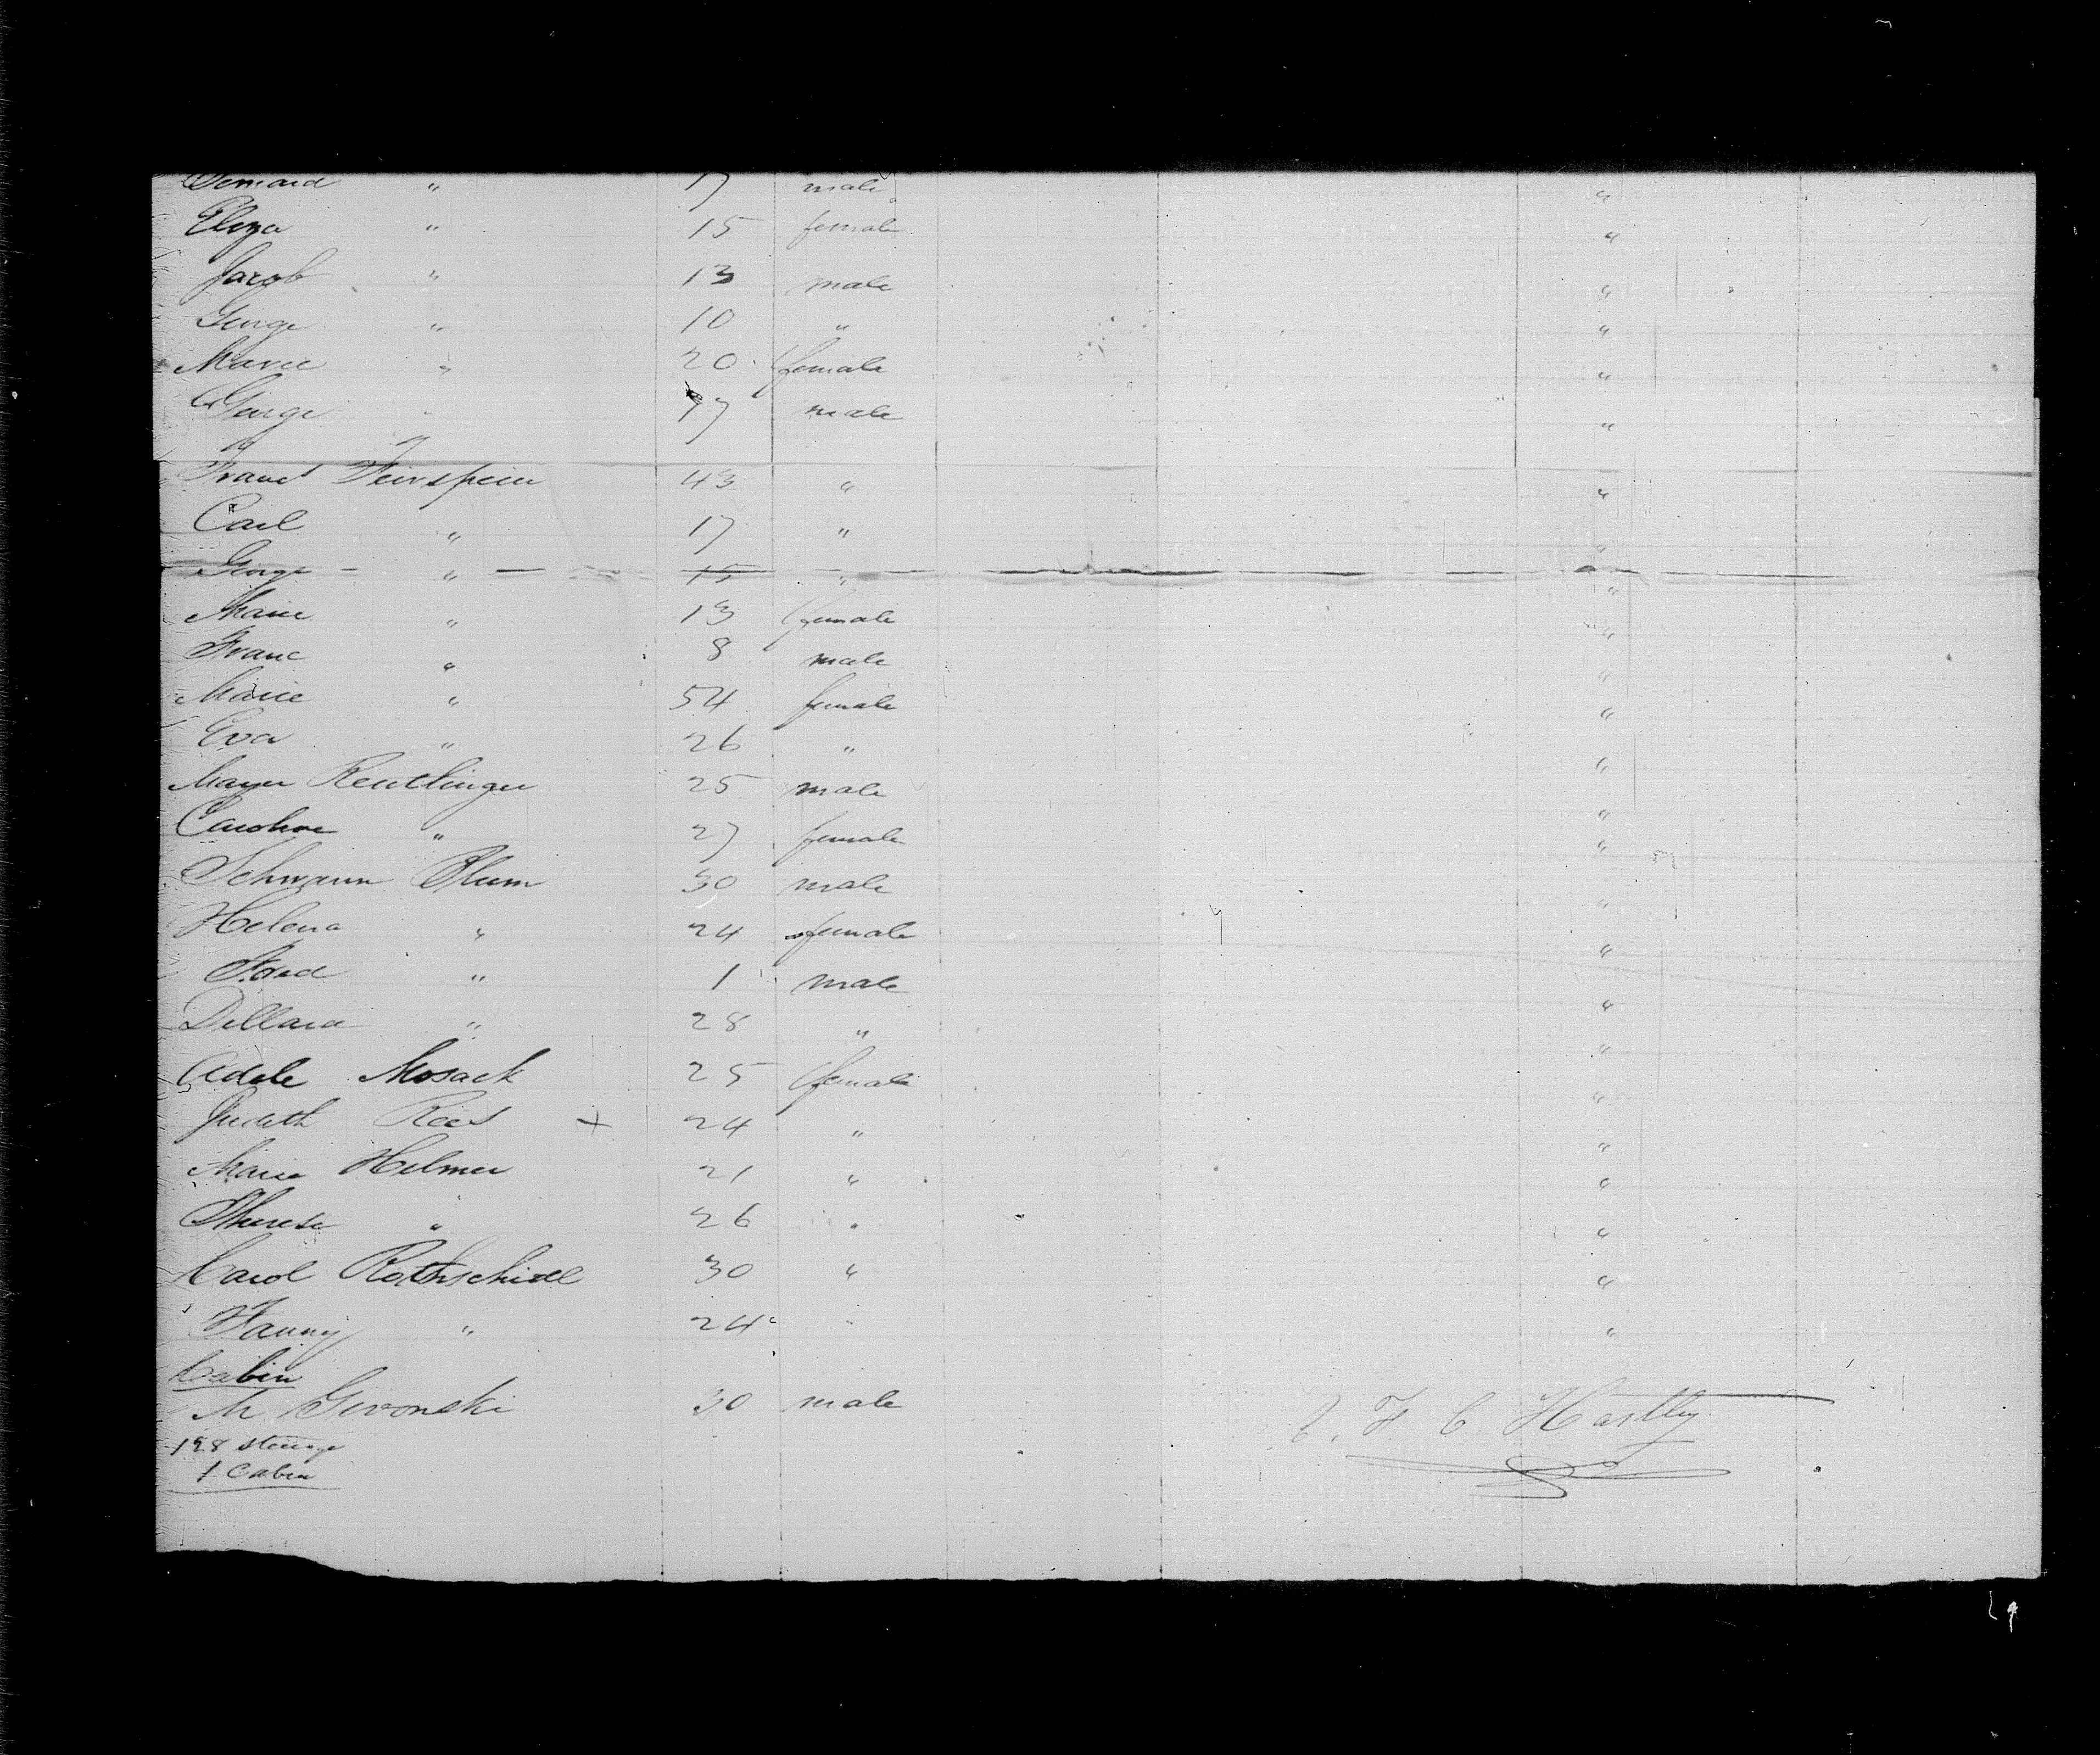 Bernard " 17 male "
Eliza " 15 female "
Jacob " 13 male "
George " 10 " "
Marie " 20 female "
George " 17 male "
Franc 43 " "
Carl " 17 " "
George " 15 " "
Marie " 13 female "
Franc " 8 male "
Marie " 54 female "
Eva " 26 " "
Mayer Reutlinger 25 male "
Caroline " 27 female "
Schwann Blum 30 male "
Helena " 24 female "
" 1 male "
" 28 " "
Adele Mosack 25 female "
Judith Rees + 24 " "
Marie Helmer 21 " "
Therese " 26 " "
Carol Rothschild 30 " "
Fanny " 24 " "
Cabin
M 30 male
H C Hartley
198 steerage
1 Cabin